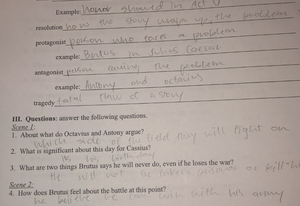 Example: honor showed in Act V
resolution how the story wraps up the problem
protagonist person who faces a problem
example: Brutus in Julius Caesar
antagonist person causing the problem
example: Antony and octavius
tragedy fatal flaw of a story
III. Questions: answer the following questions.
Scene 1:
1. About what do Octavius and Antony argue?
which side of the field they will fight on
2. What is significant about this day for Cassius?
its his birthday
3. What are two things Brutus says he will never do, even if he loses the war?
He will not be taken prisoner or kill
Scene 2:
4. How does Brutus feel about the battle at this point?
he believe he can win with his army